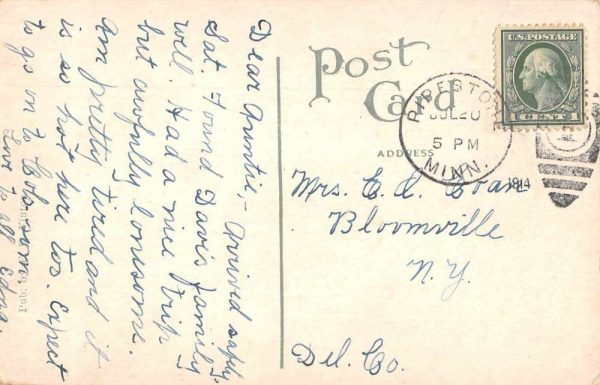 Post
Card
ADDRESS
U.S. POSTAGE
1 CENT 1
PIPESTONE
JUL 20
5 PM
MINN.
1914
Dear Auntie,- Arrived safely
Sat. Found Davis family
well. Had a nice trip
but awfully lonesome.
Am pretty tired and it
is so hot here too. Expect
to go on to
Love to all Edna.
Mrs. C. L. Coan
Bloomville
N.Y.
Del. Co.
Pub. by